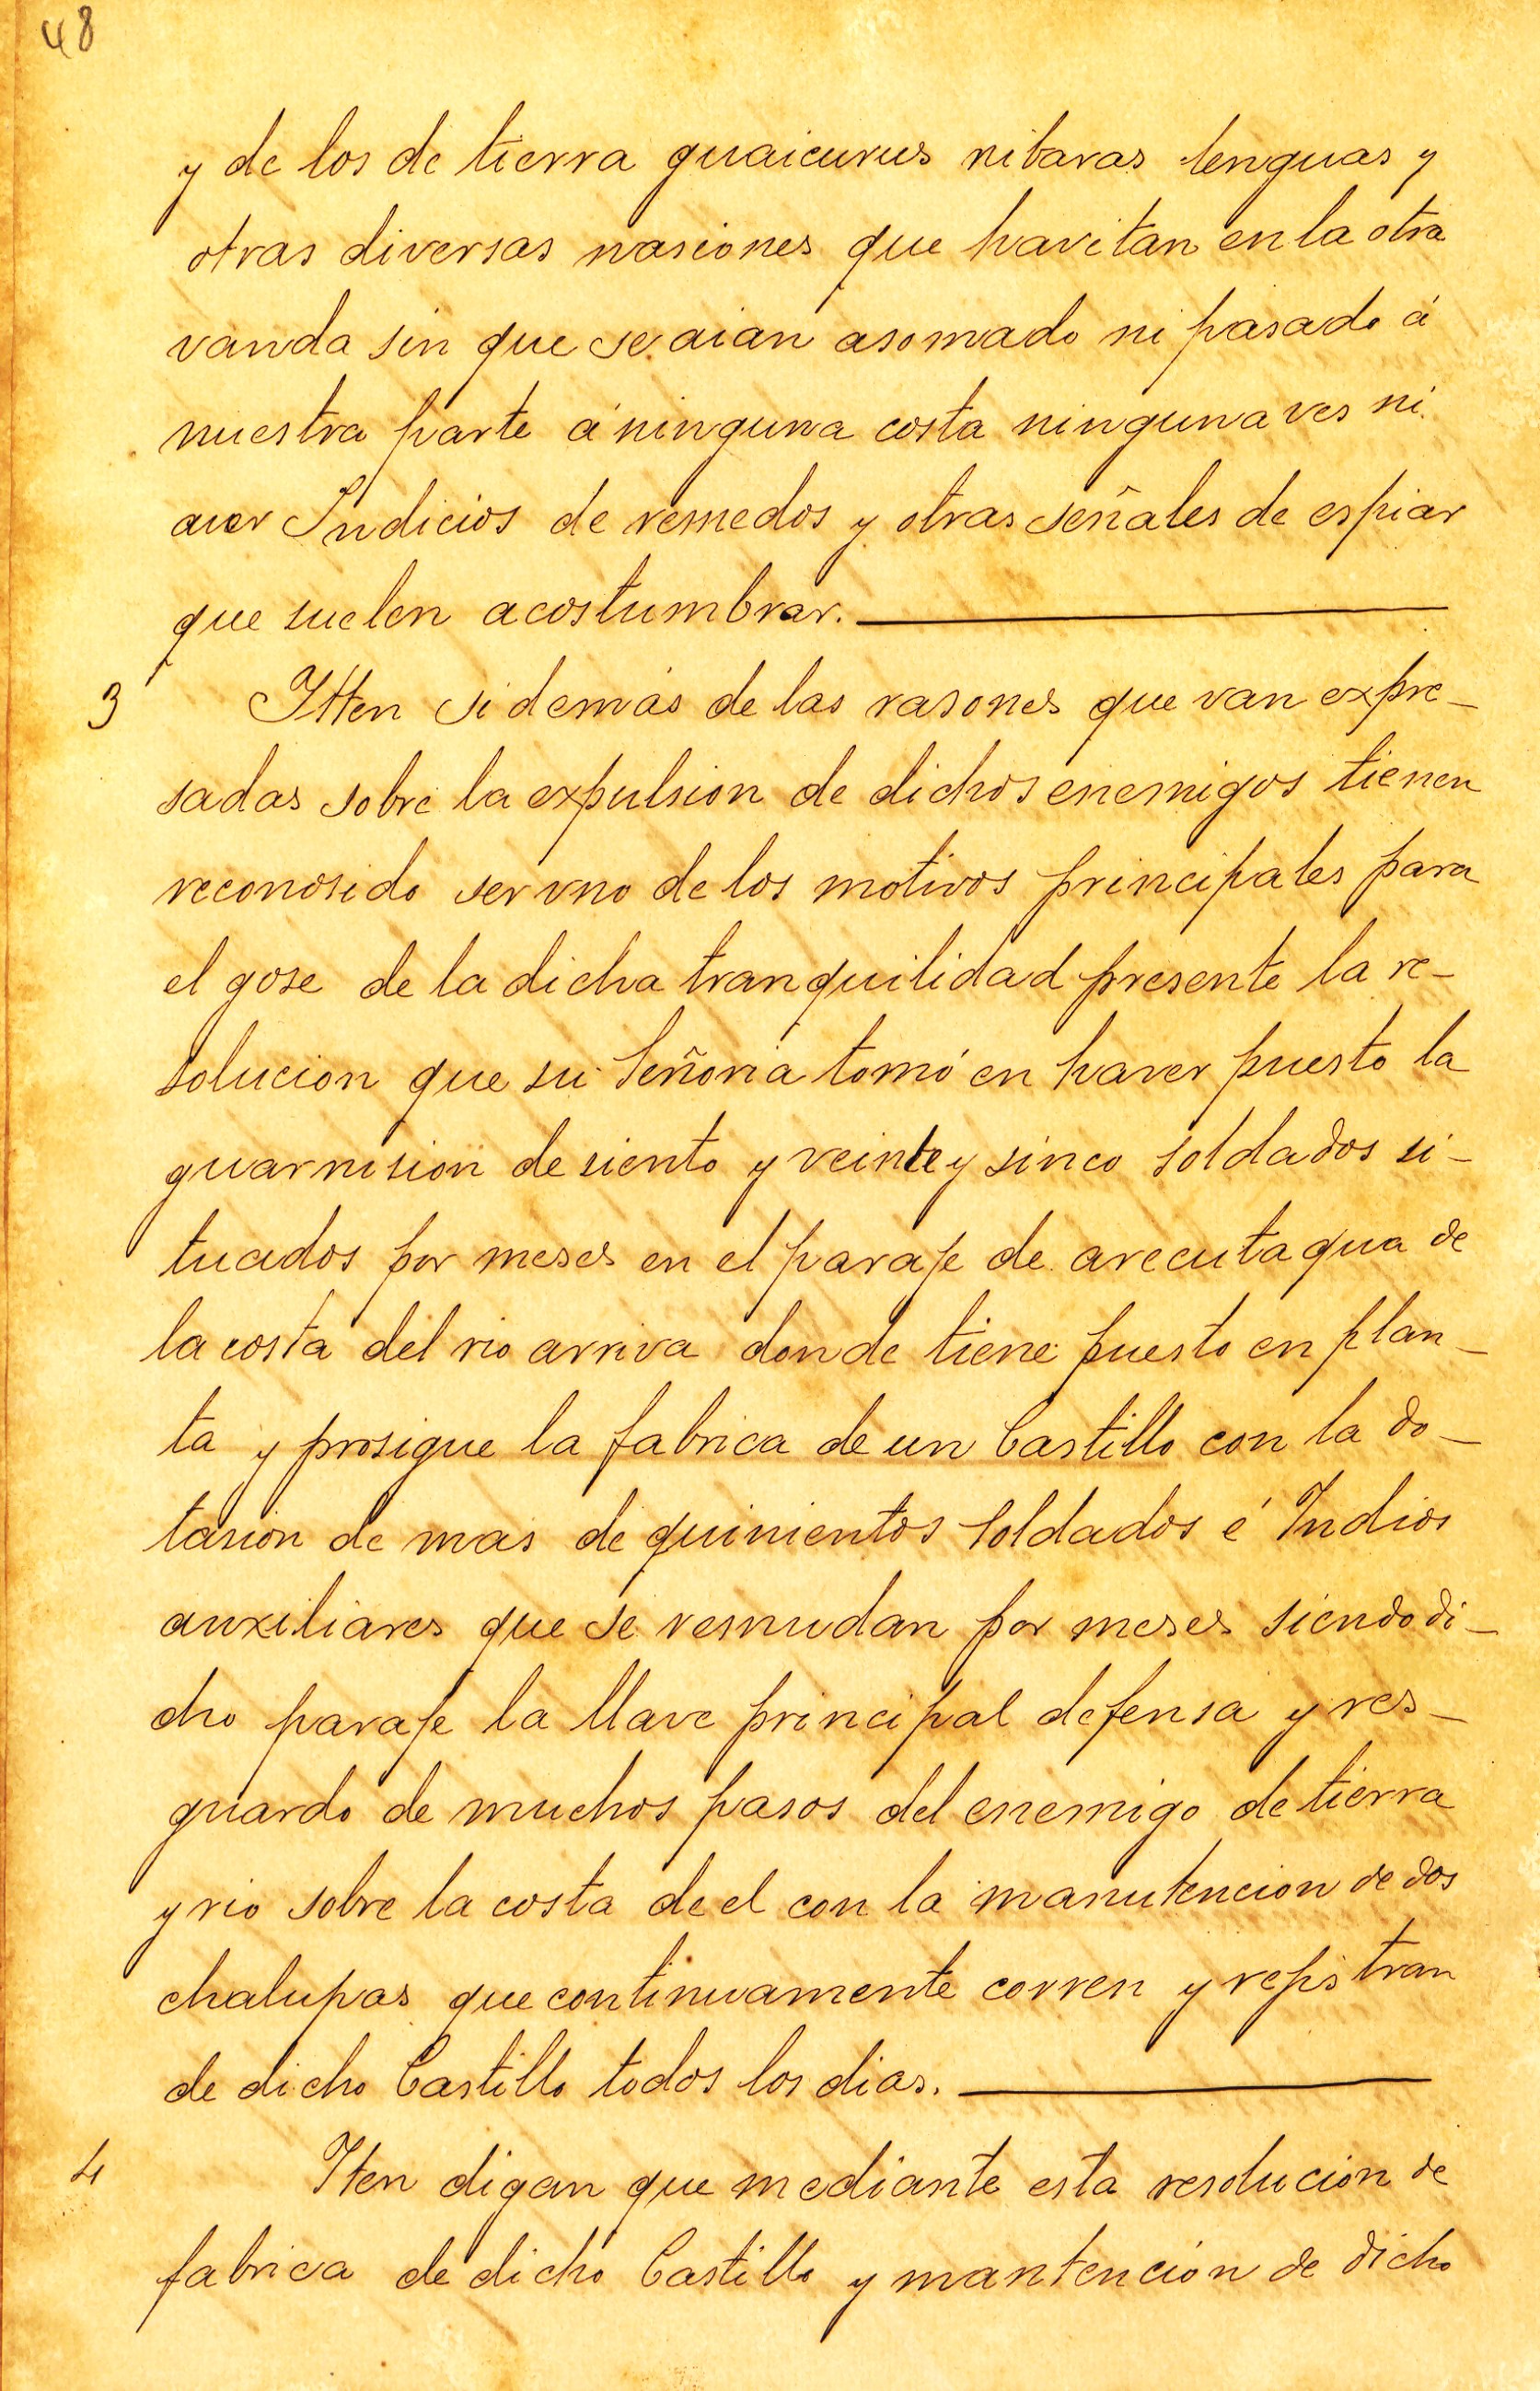 48
y de los de tierra guaicurus nibaras lenguas y
otras diversas nasiones que havitan en la otra
vanda sin que se aian asomado ni pasado á
nuestra parte á ninguna costa ninguna ves ni
aver Indicios de remedos y otras señales de espiar
que suelen acostumbrar.
3 Itten si demás de las rasones que van expre-
sadas sobre la expulsion de dichos enemigos tienen
reconosido ser vno de los motivos principales para
el gose de la dicha tranquilidad presente la re-
solucion que su Señoria tomó en haver puesto la
guarnision de siento y veinte y sinco soldados si-
tuados por meses en el paraje de arecutagua de
la costa del rio arriva donde tiene puesto en plan-
ta y prosigue la fabrica de un Castillo con la do-
tasion de mas de quinientos soldados é Indios
auxiliares que se remudan por meses siendo di-
cho paraje la llave principal defensa y res-
guardo de muchos pasos del enemigo de tierra
y rio sobre la costa de el con la manutencion de dos
chalupas que continuamente corren y rejistran
de dicho Castillo todos los dias.
4 Iten digan que mediante esta resolucion de
fabrica de dicho Castillo y mantencion de dicho